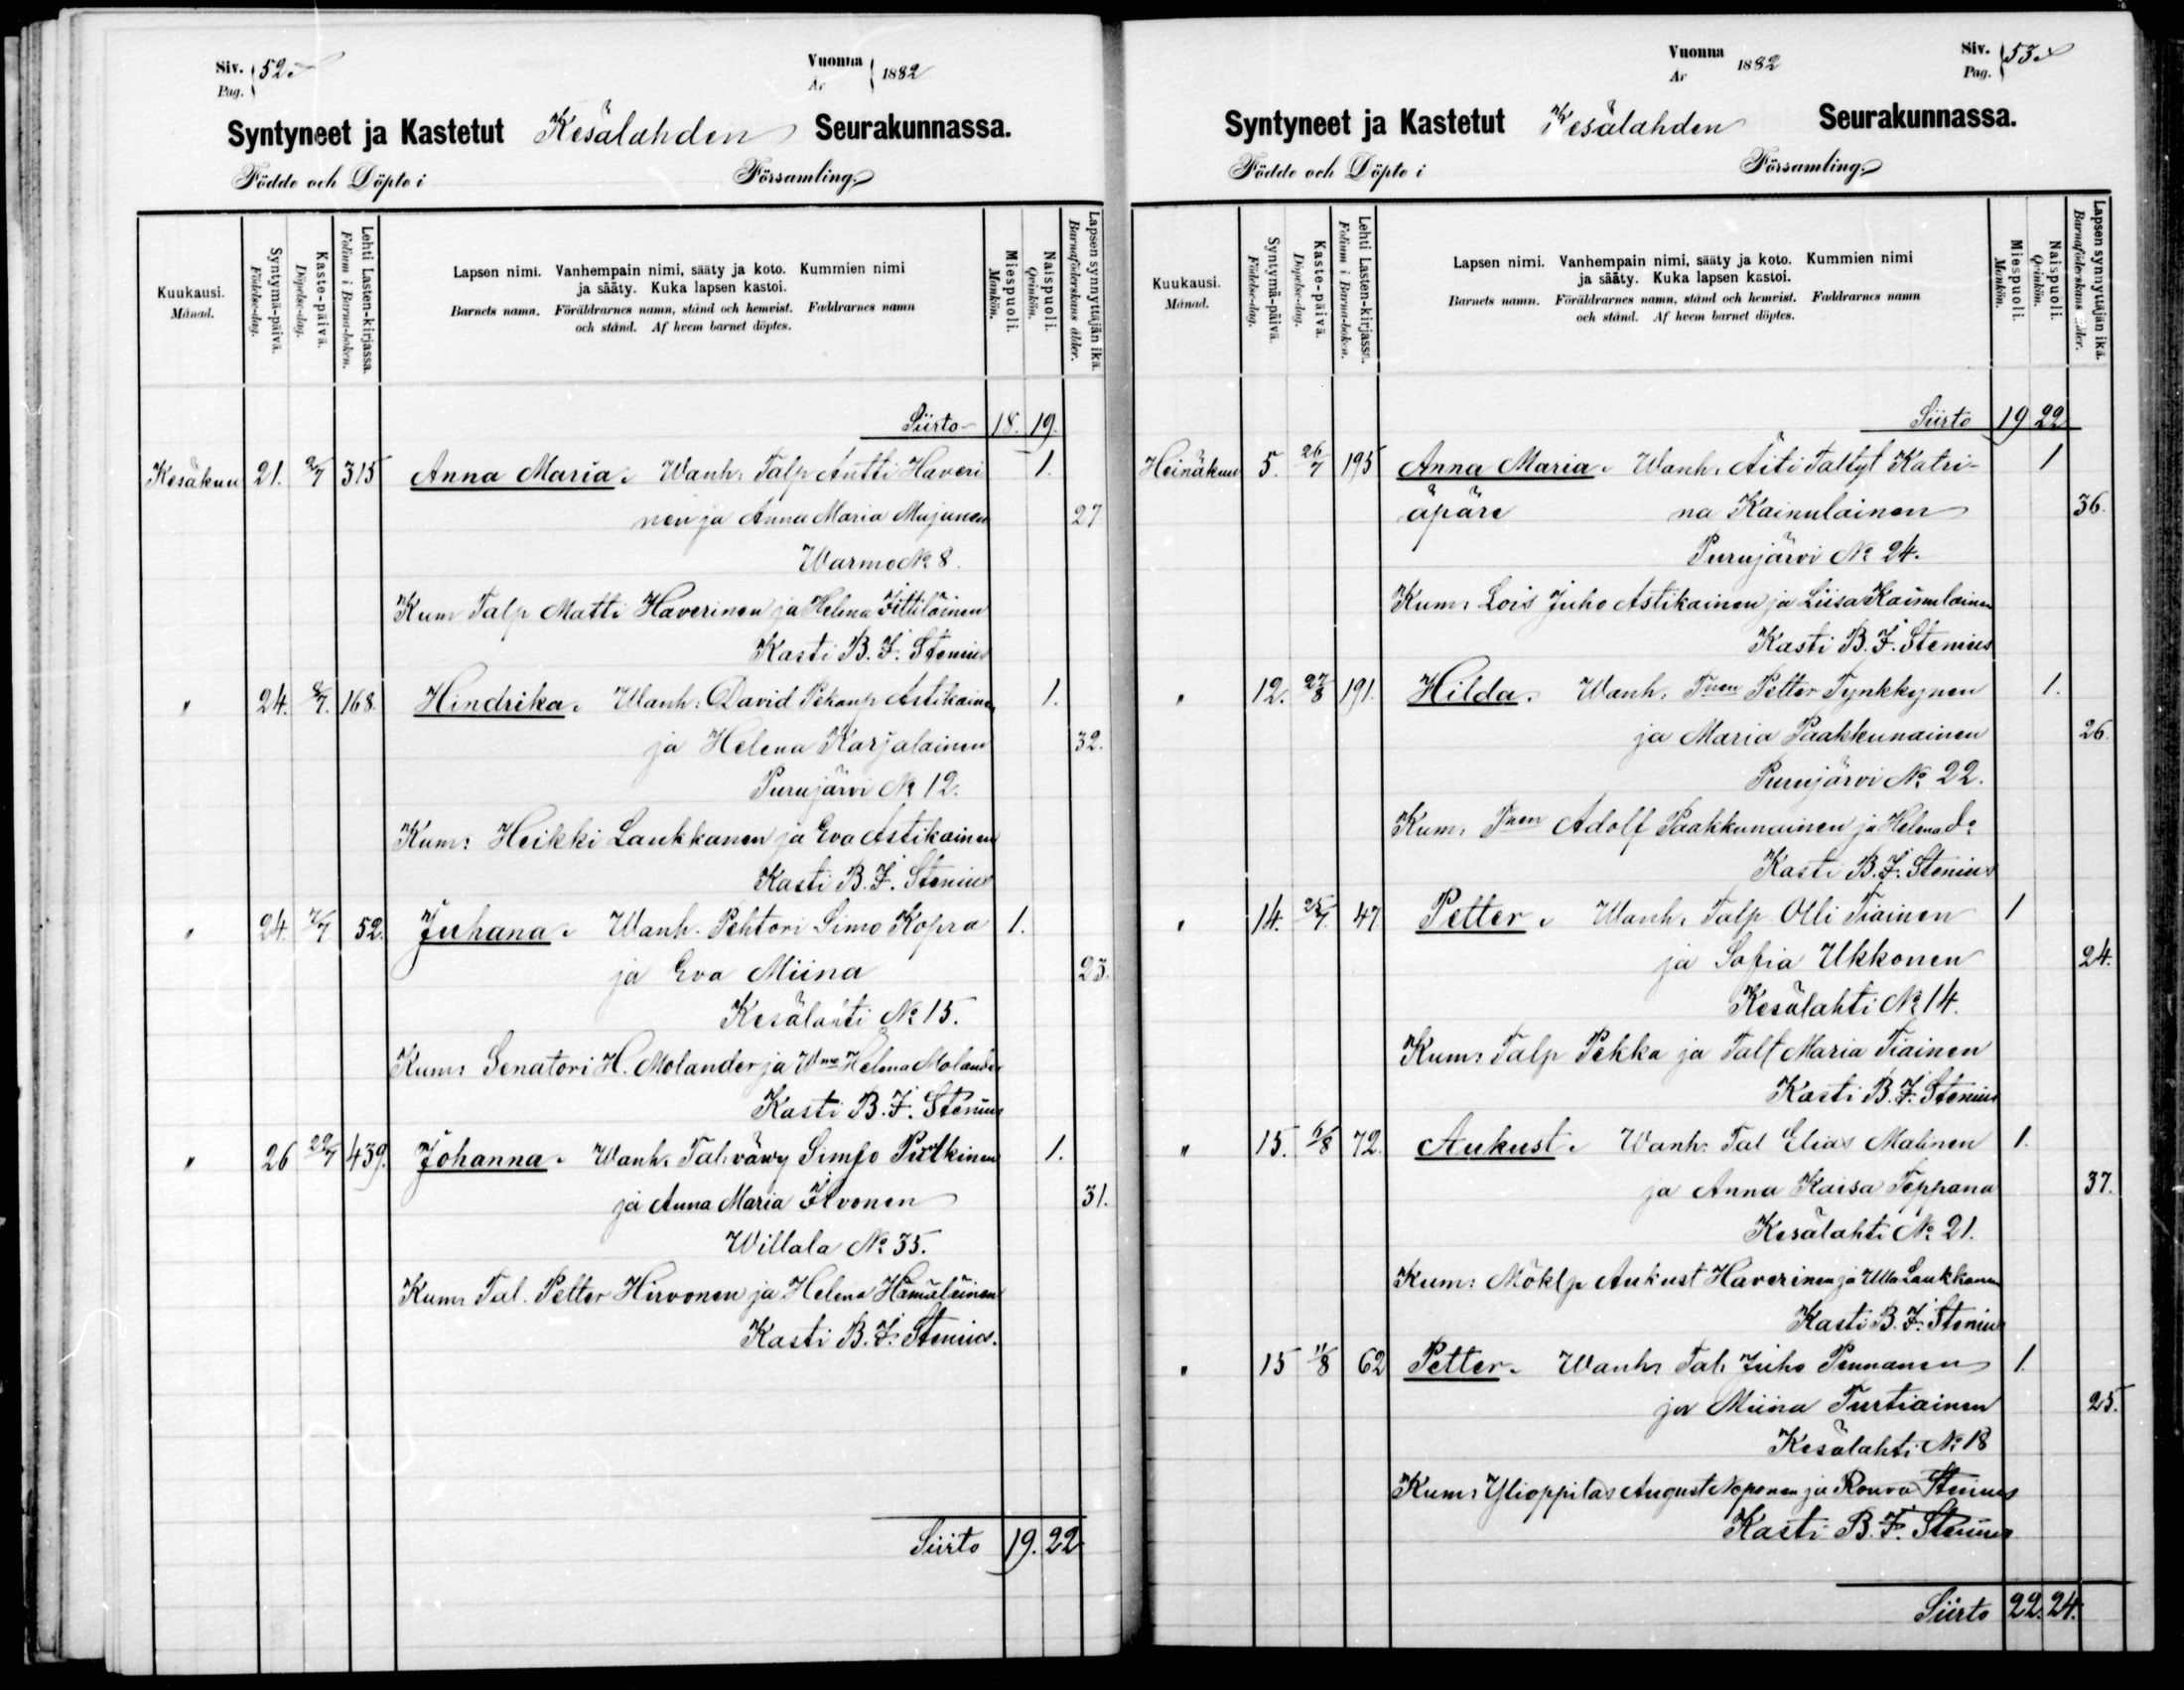 Siv. Pag. 52.
Vuonna År 1882
Syntyneet ja Kastetut Kesälahden Seurakunnassa.
Födde och Döpte i Församling.
Kuukausi. Månad.
Syntymä-päivä. Födelse-dag.
Kaste-päivä. Döpelse-dag.
Lehti Lasten-kirjassa. Folium i Barna-boken.
Lapsen nimi. Vanhempain nimi, sääty ja koto. Kummien nimi
ja sääty. Kuka lapsen kastoi.
Barnets namn. Föräldrarnes namn, stånd och hemvist. Faddrarnes namn
och stånd. Af hvem barnet döptes.
Miespuoli. Mankön.
Naispuoli. Qvinkön.
Lapsen synnyttäjän ikä. Barnaföderskans ålder.
Siirto 18. 19.
Kesäkuu 21. 2/7 315 Anna Maria. Wanh. Talp Antti Haveri 1.
nen ja Anna Maria Mujunen 27
Warmo No 8.
Kum Talp Matti Haverinen ja Helena
Kasti B. F. Stenius
" 24. 8/7. 168 Hindrika. Wanh: David Pekanp Astikainen 1.
ja Helena Karjalainen 32.
Purujärvi No 12.
Kum: Heikki Laukkanen ja Eva Astikainen
Kasti B. F. Stenius
" 24. 2/7 52. Juhana. Wanh. Pehtori Simo Kopra 1.
ja Eva Miina 23.
Kesälahti No 15.
Kum: Senatori H. Molander ja Helena Molander
Kasti B. F. Stenius
" 26 22/7 439. Johanna. Wanh. Tal. vävy Simfo Putkinen 1.
ja Anna Maria Ilvonen 31.
Willala No 35.
Kum: Tal. Petter Hirvonen ja Helena Hämäläinen
Kasti B. F. Stenius.
Siirto 19. 22
Vuonna År 1882
Siv. Pag. 53.
Syntyneet ja Kastetut Kesälahden Seurakunnassa.
Födde och Döpte i Församling.
Kuukausi. Månad.
Syntymä-päivä. Födelse-dag.
Kaste-päivä. Döpelse-dag.
Lehti Lasten-kirjassa. Folium i Barna-boken.
Lapsen nimi. Vanhempain nimi, sääty ja koto. Kummien nimi
ja sääty. Kuka lapsen kastoi.
Barnets namn. Föräldrarnes namn, stånd och hemvist. Faddrarnes namn
och stånd. Af hvem barnet döptes.
Miespuoli. Mankön.
Naispuoli. Qvinkön.
Lapsen synnyttäjän ikä. Barnaföderskans ålder.
Siirto 19 22
Heinäkuu 5. 26/7 195 Anna Maria. Wanh. Äiti Taltyt Katri- 1
äpäre na Kainulainen 36.
Purujärvi No 24.
Kum: Lois Juho Astikainen ja Liisa Kainulainen
Kasti B. F. Stenius
" 12. 27/8 191. Hilda. Wanh. Petter Tynkkynen 1.
ja Maria Paakkunainen 26.
Purujärvi No 22.
Kum: Adolf Paakkunainen ja Helena do
Kasti B. F. Stenius
" 14. 25/7. 47 Petter. Wanh. Talp Olli Tiainen 1
ja Sofia Ukkonen 24.
Kesälahti No 14.
Kum: Talp Pekka ja Talt Maria Tiainen
Kasti B. F. Stenius
" 15. 6/8 72. Aukust. Wanh: Tal Elias Malinen 1.
ja Anna Kaisa Teppana 37.
Kesälahti No 21.
Kum: Möklp Aukust Haverinen ja Ulla Laukkanen
Kasti B. F. Stenius
" 15 11/8 62 Petter. Wanh. Tal. Juho Pennanen 1.
ja Miina Turtiainen 25.
Kesälahti No 18
Kum: Ylioppilas August Noponen ja Rouva Stenius
Kasti B. F. Stenius
Siirto 22. 24.